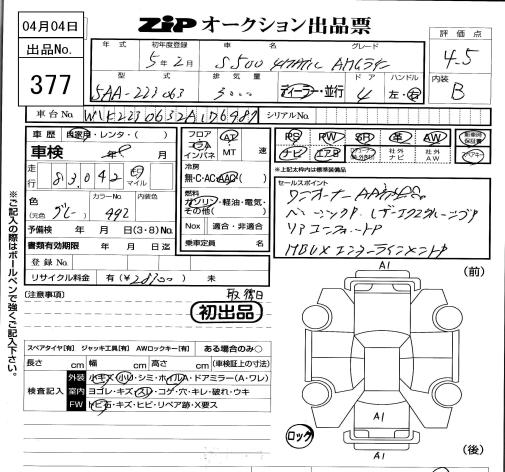 04月04日
ZIP オークション出品票
出品No.
377
年式 初年度登録 車名 グレード
5年2月 S500 4MATIC AMGライン
評価点
4.5
型式 排気量 ドア ハンドル
5AA-223063 3000 ディーラー・並行 4 左・右
内装
B
車台No. シリアルNo.
車歴 自家用・レンタ・( )
車検 年 月
走行 83,042 km マイル
色 (元色 グレー) カラーNo. 内装色
992
予備検 年 月 日(3・8)No.
書類有効期限 年 月 日迄
登録No.
リサイクル料金 有(¥ ) 未
フロア コラム インパネ AT MT 速
冷房
無・C・AC・AAC( )
燃料
ガソリン・軽油・電気・その他( )
Nox 適合・非適合
乗車定員 名
PS PW SR 革 AW
ナビ エアB 社外ナビ 社外AW
※上記太枠内は標準装備品
セールスポイント
ワンオーナー
ベーシックP レザーエクスクルーシブP
リアコンフォートP
MBUXインテリアアシスタント
[注意事項]
取 後日
初出品
スペアタイヤ[有] ジャッキ工具[有] AWロックキー[有] ある場合のみ○
長さ cm 幅 cm 高さ cm (車検証上の寸法)
検査記入
外装 小キズ・小凹・シミ・ホイルA・ドアミラー(A・ワレ)
室内 ヨゴレ・キズ・スレ・コゲ・穴・キレ・破れ・ウキ
FW トビ石・キズ・ヒビ・リペア跡・X要ス
A1
(前)
A1
A1
ロック
(後)
※ご記入の際はボールペンで強くご記入下さい。